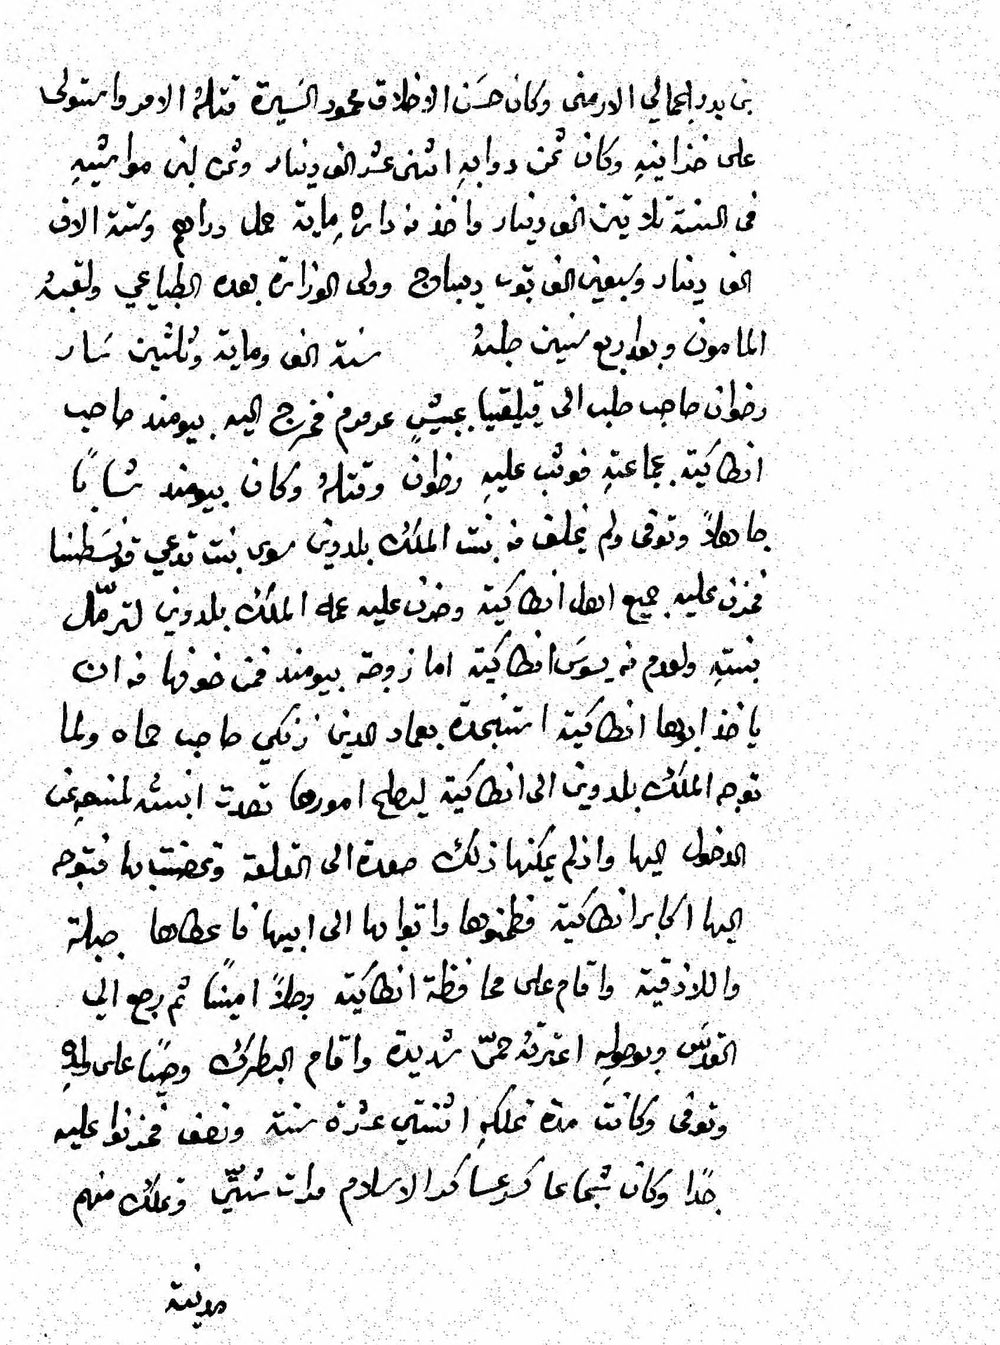 بن بدر الجمالي الارمني وكان حسَن الاخلاق محمود السَيرة قتلهُ الامر واستولى
على خزاينهِ وكان ثمن دوابهِ اثنى عشر الف دينار وثمن لبن مواشيهِ
في السنة ثلاثين الف دينار واخذ من دارهِ ماية حمل دراهم وستة الاف
الف دينار وسبعين الف ثوب ديباج وولى الوزارة بعده البطايحي ولقبهُ
المامون وبعد اربع سنين صلبهُ سنة الف وماية وثلثين سَار
رضوان صاحب حلب الى قيليقيا بجيشٍ عرمرم فخرج اليه بيومند صاحب
انطاكية بجماعتهِ فوثب عليهِ رضوان وقتلهُ وكان بيومند شابًا
جاهلاً وتوفى ولم يخلف من بنت الملك بلدوين سوى بنت تدعي قونسَطنسا
فحزن عليهِ جميع اهل انطاكية وحزن عليه عمه الملك بلدوين لترمّل
بنتهِ ولعدم من يسوَس انطاكية اما زوجة بيومند فمن خوفها من ان
ياخذ ابوها انطاكية استنجدة بعماد الدين زنكي صاحب حماه ولما
توجه الملك بلدوين الى انطاكية ليصلح امورها تصدت ابنته لمنعهِ عن
الدخول اليها واذ لم يمكنها ذلك صعدة الى القلعة وتحصنت بها فتوجه
اليها اكابر انطاكية فطمنوها واتوا بها الى ابيها فاعطاها جبلة
واللاذقية واقام على محافظة انطاكية رجلاً امينًا ثم رجع الي
القدسَ وبوصولهِ اعترتهُ حمىّ شديدة واقام البطرك وصيًا على ولدهِ
وتوفى وكانت مدة تملكهِ اثنتي عشرة سنة ونصف فحزنوا عليه
جدًا وكان شجاعا كسر عساكر الاسلام مرات شتىّ وتملك منهم
مدينة